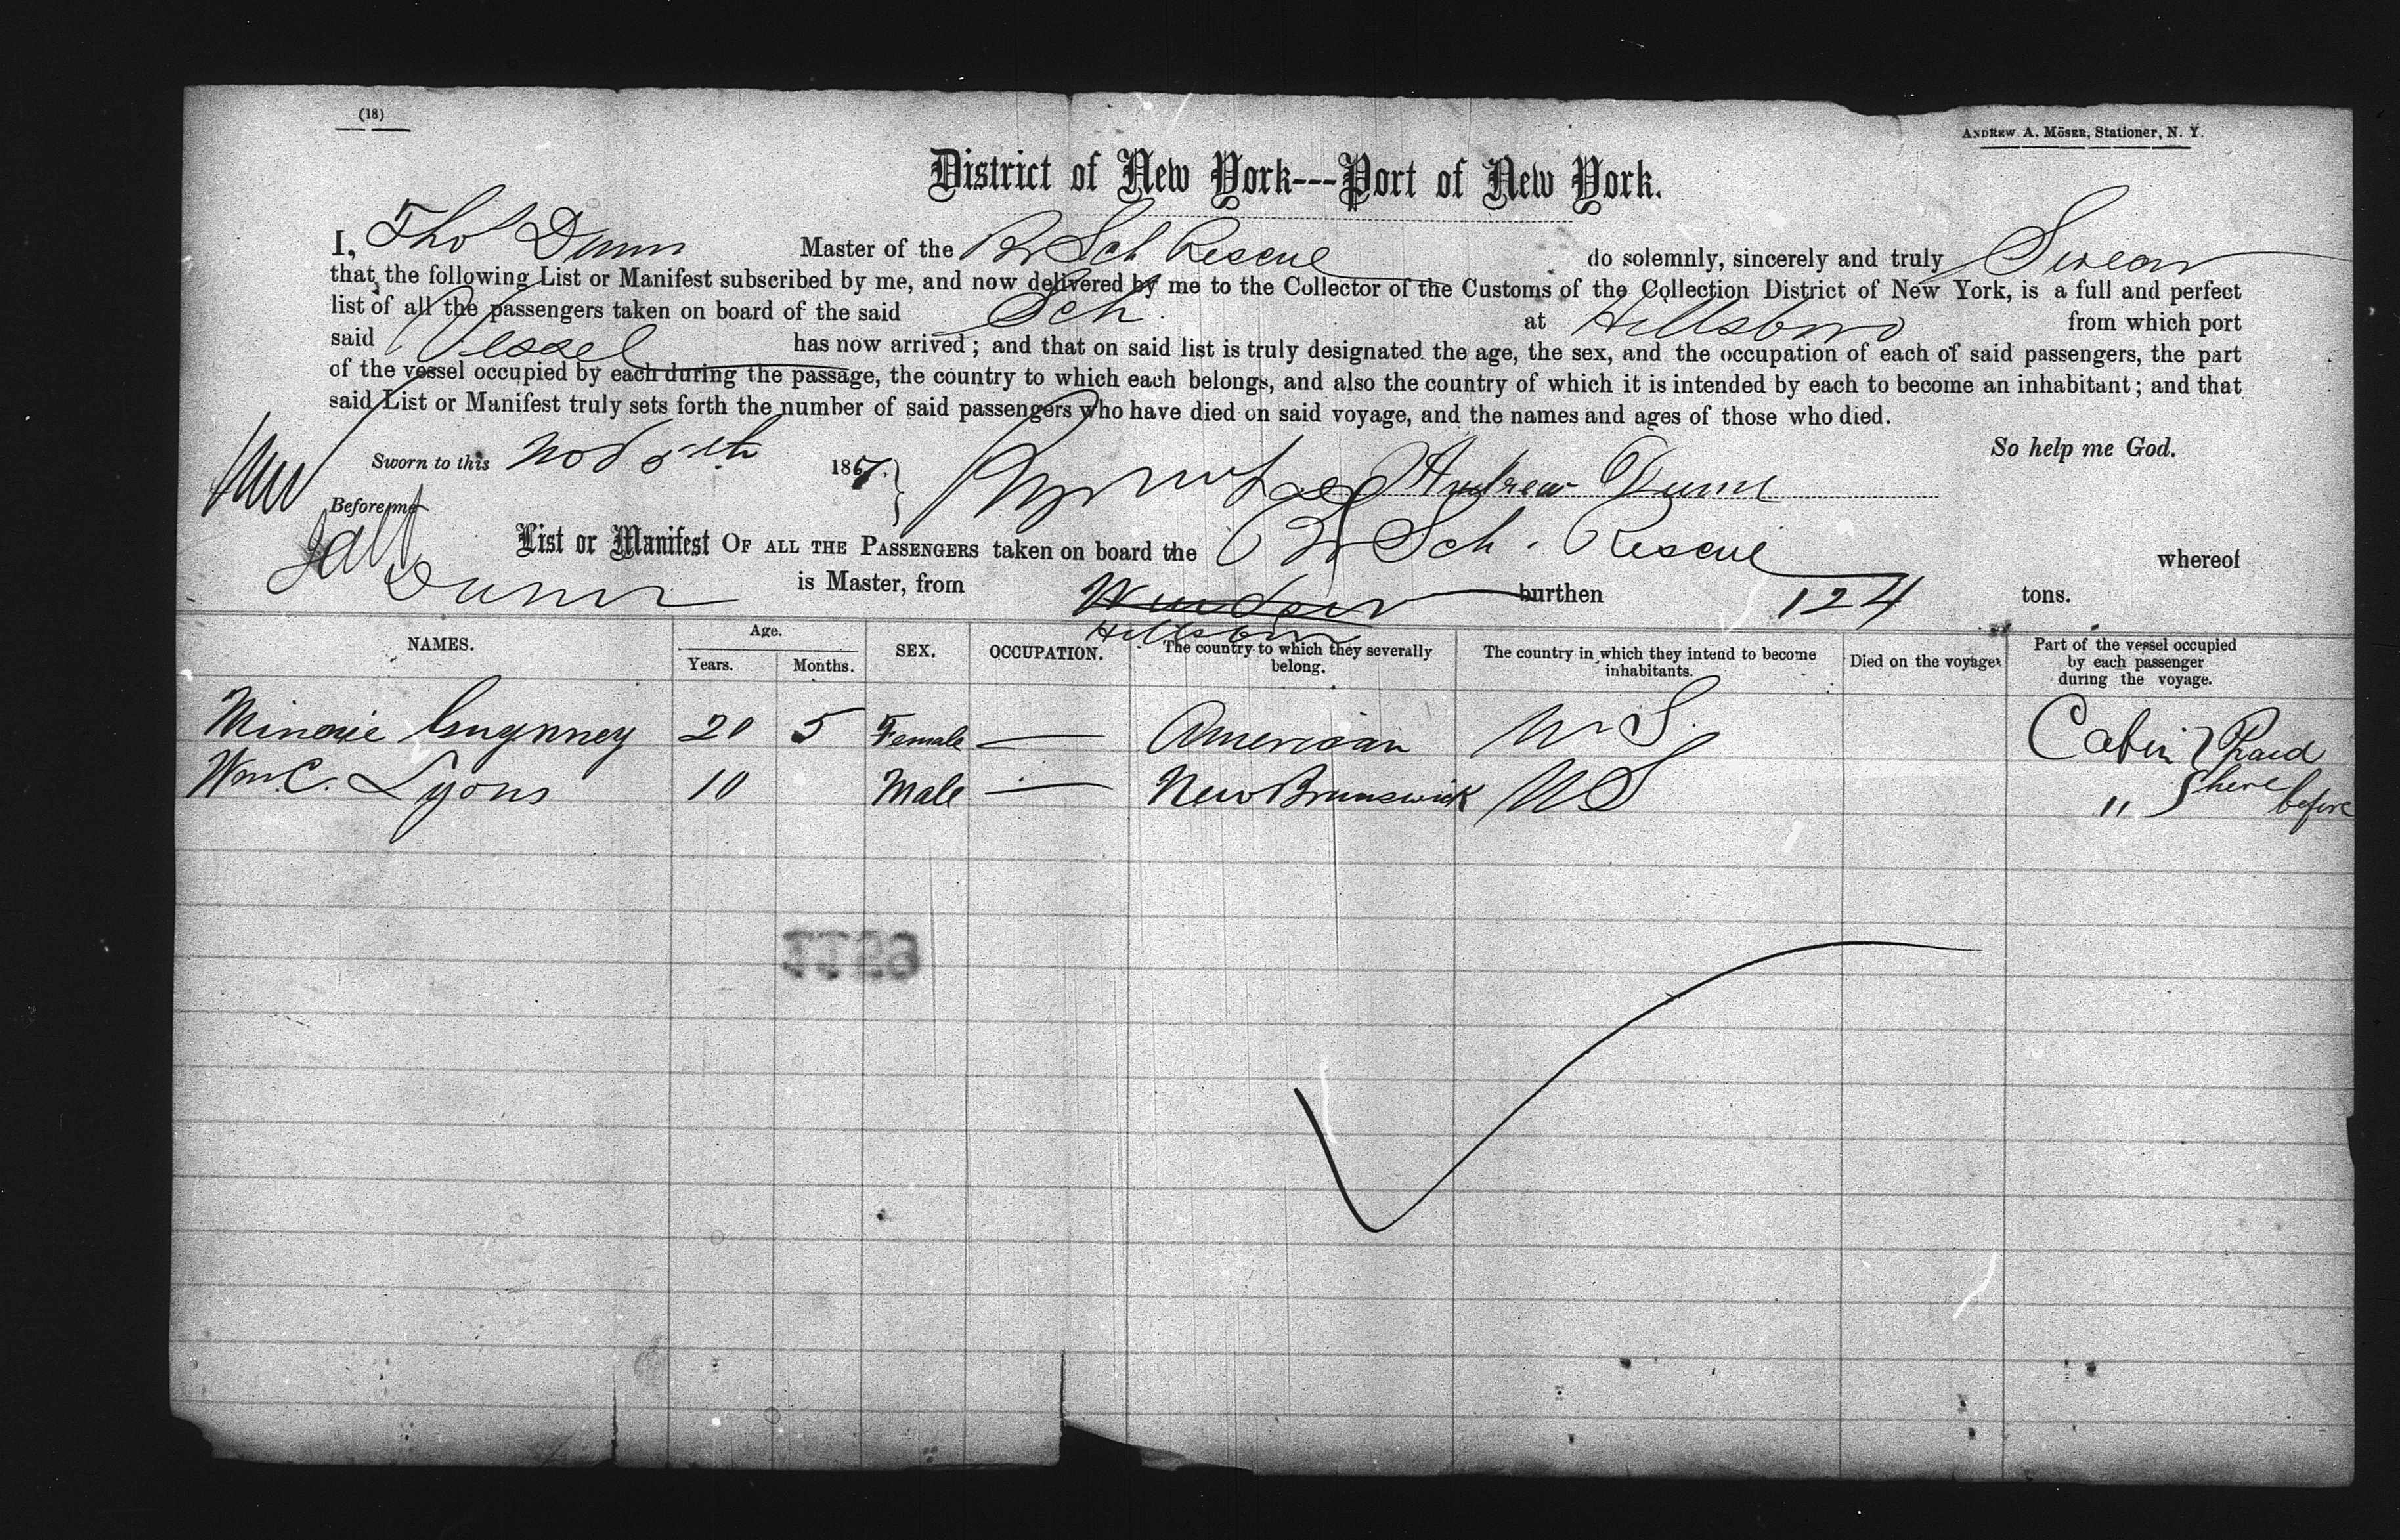 (18)
ANDREW A. MÖSER, Stationer, N. Y.
District of New York---Port of New York.
I, Thos Dunn Master of the Br Sch Rescue do solemnly, sincerely and truly Swear
that the following List or Manifest subscribed by me, and now delivered by me to the Collector of the Customs of the Collection District of New York, is a full and perfect
list of all the passengers taken on board of the said Sch. at Hillsboro from which port
said Vessel has now arrived; and that on said list is truly designated the age, the sex, and the occupation of each of said passengers, the part
of the vessel occupied by each during the passage, the country to which each belongs, and also the country of which it is intended by each to become an inhabitant; and that
said List or Manifest truly sets forth the number of said passengers who have died on said voyage, and the names and ages of those who died.
So help me God.
Sworn to this Nov 5th 1867. Andrew Dunn
Before me
List or Manifest OF ALL THE PASSENGERS taken on board the Br Sch. Rescue whereof
Dunn is Master, from Windsor burthen 124 tons.
Hillsboro
NAMES. Age. Years. Months. SEX. OCCUPATION. The country to which they severally belong. The country in which they intend to become inhabitants. Died on the voyage. Part of the vessel occupied by each passenger during the voyage.
20 5 Female — American U S. Cabin } Paid
Wm. C. Lyons 10 Male — New Brunswick U S " } here before
1159